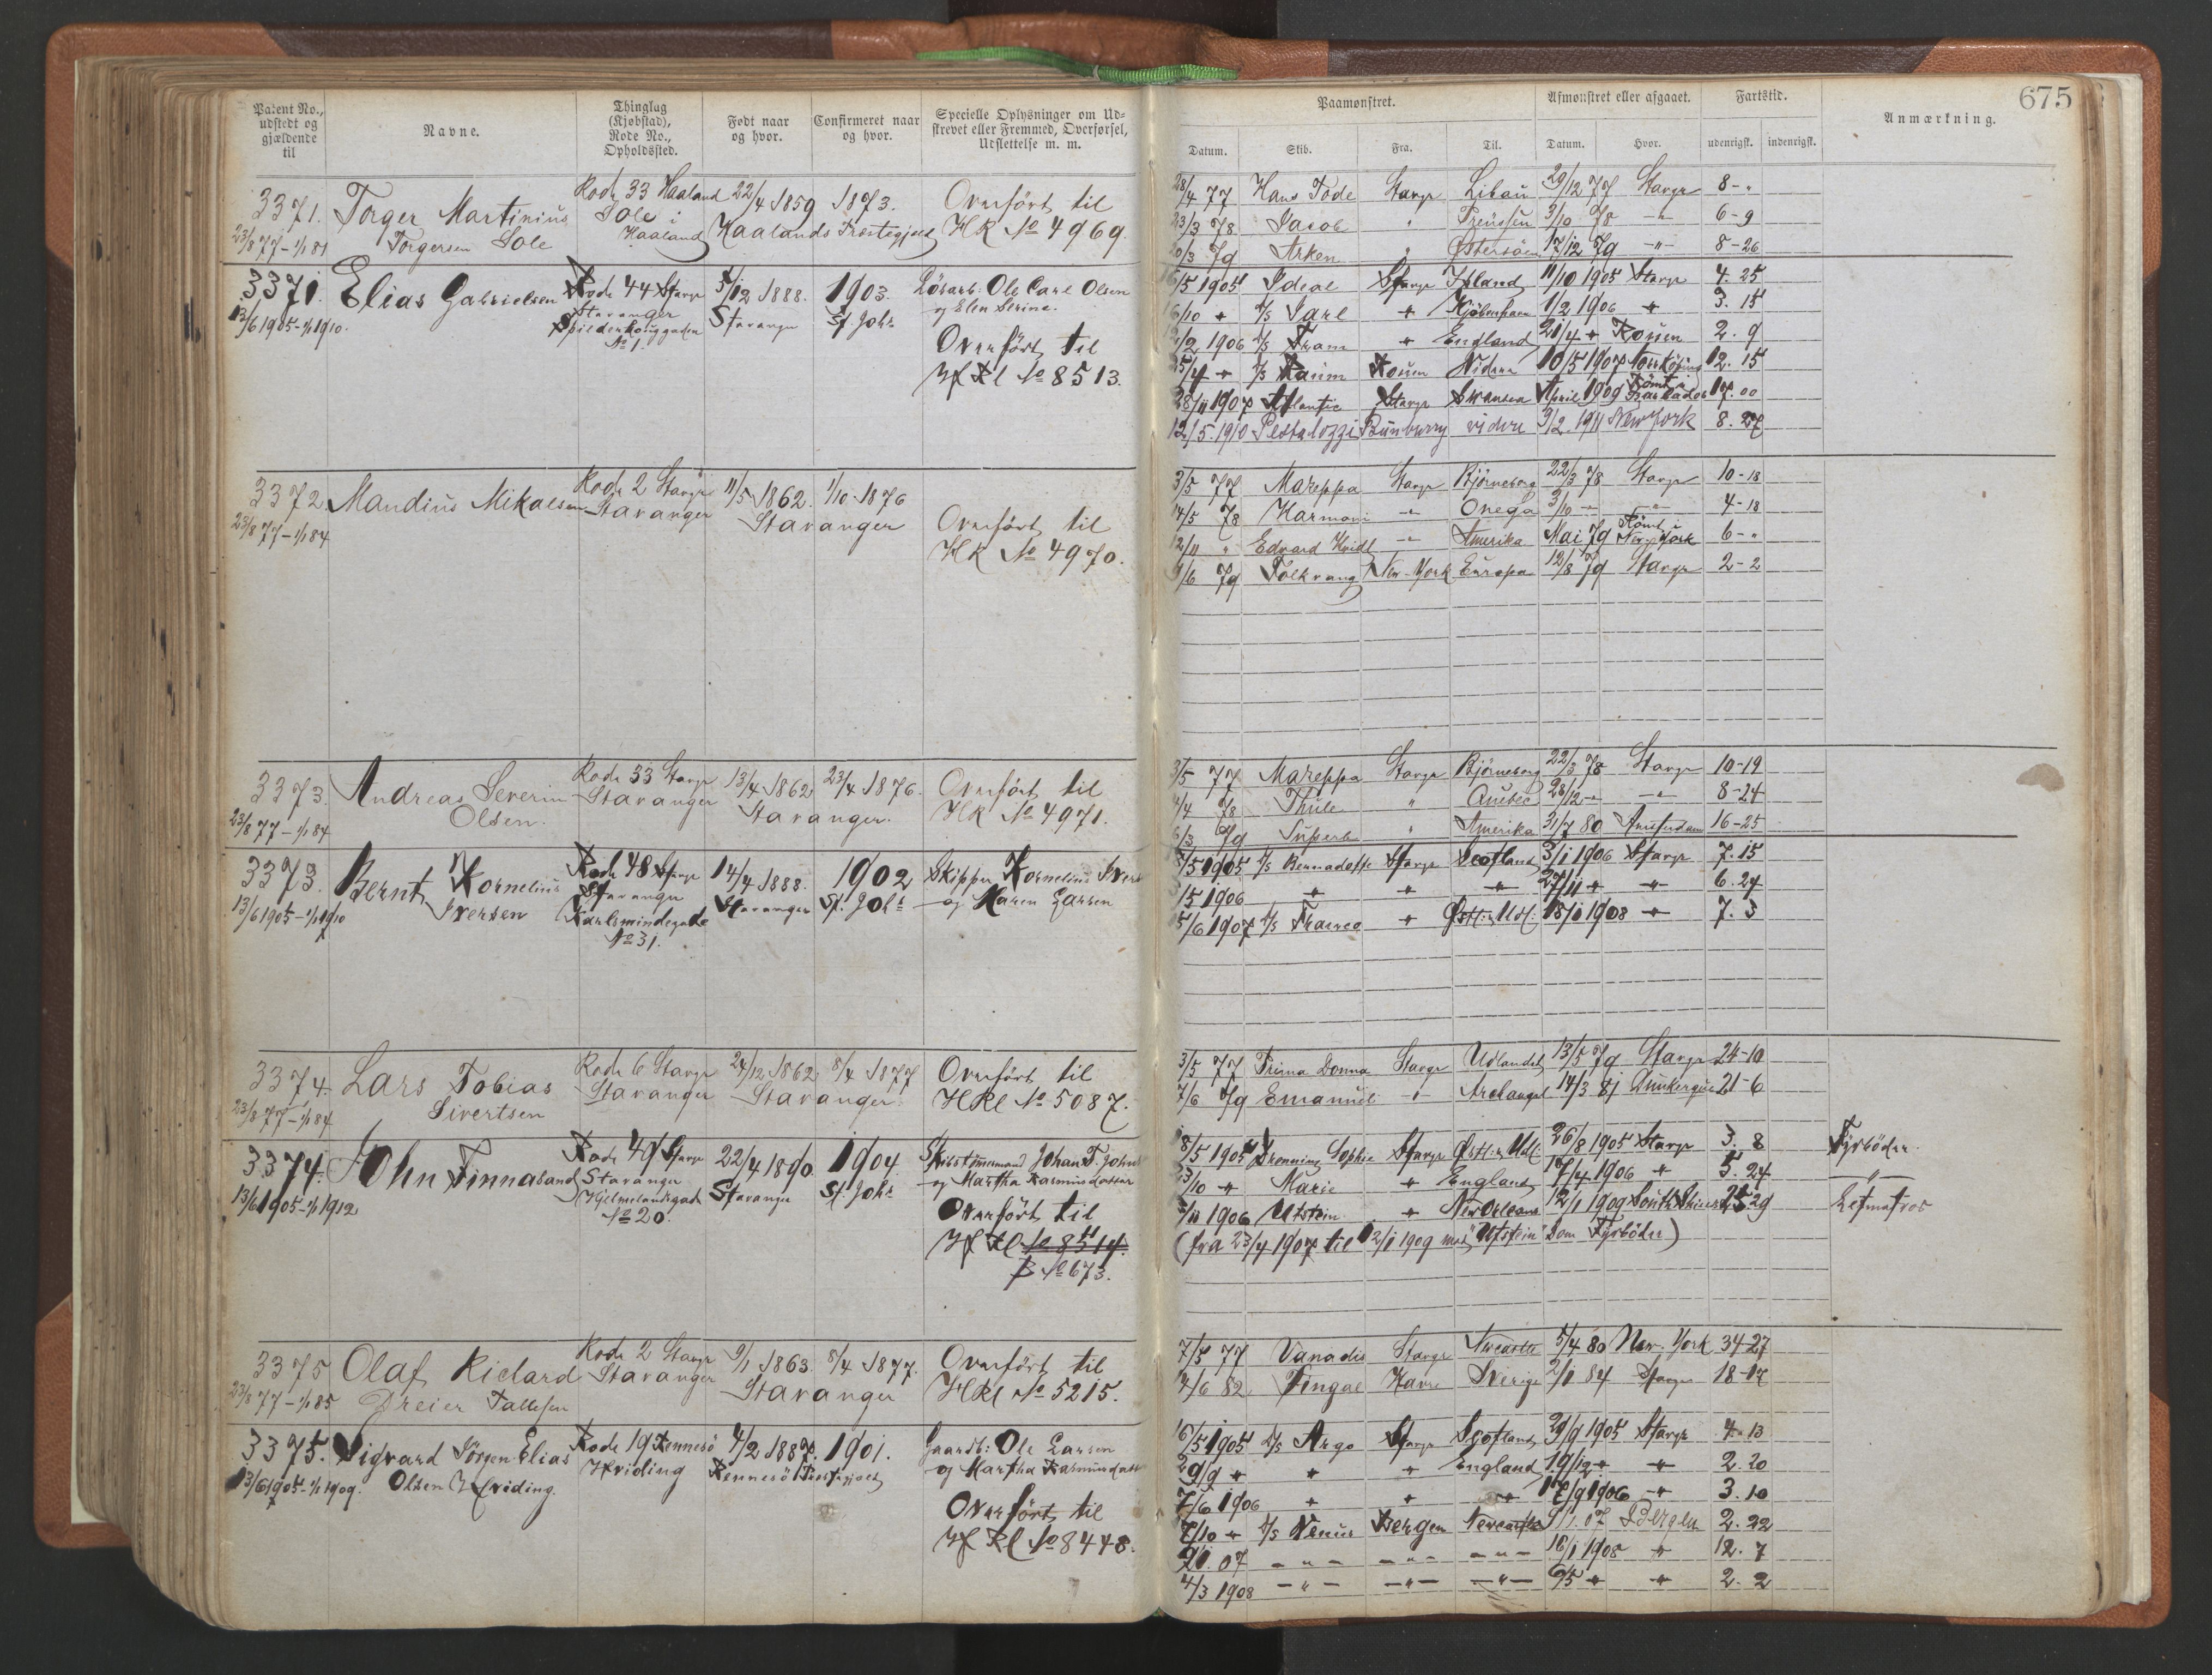 675
Patent No., udstedt og gjældende til
Navne.
Thinglag (Kjøbstad), Rode No., Opholdssted.
Født naar og hvor.
Confirmeret naar og hvor.
Specielle Oplysninger om Udskrevet eller Fremmed, Overførsel, Udslettelse m. m.
Paamønstret.
Afmønstret eller afgaaet.
Fartstid.
Anmærkning.
Datum. Skib. Fra. Til. Datum. Hvor. udenrigsk. indenrigsk.
3371. Torger Martinius Rode 33 Haaland 22/4 1859 1873. Overført til
23/8 77 - 1/1 81 Torgersen Sole Sole i Haaland Haalands Præstegjeld HK No 4969.
28/4 77 Hans Tode Stavgr Libau 29/12 77 Stavgr 8 - "
23/3 78 Jacob " Preussen 3/10 78 - " - 6 - 9
Arken " Østersøen 17/12 79 - " - 8 - 26
3371. Elias Gabrielsen Rode 44 Stavgr 5/12 1888. 1903. Løsarb. Ole Carl Olsen
13/6 1905 - 1/1 1910. Stavanger Stavanger St. Johs og Elen Serine.
No 1.
Overført til
Hf Rl No 8513.
/5 1905 Ideal Stavgr Island 11/10 1905 Stavgr 4. 25
/10 " D/S Jarl " Kjøbenhavn 1/2 1906 " 3. 15
/2 1906 D/S Fram " England 21/4 " Rouen 2. 9
25/4 " D/S Raum Rouen Videre 10/5 1907 Norrköping 12. 15
28/11 1907 Atlantic Stavgr Swansea April 1909 Rømt i Barbados 17. 00
12/5. 1910 Pestalozzi Bunburry videre 9/2. 1911 New York 8. 27
3372. Mandius Mikaelsen Rode 2 Stavgr 11/5 1862. 1/10 - 1876
23/8 77 - 1/1 84 Stavanger Stavanger Overført til
HK No 4970.
3/5 77 Mareppa Stavgr Bjørneborg 22/3 78 Stavgr 10 - 18
14/5 78 Harmoni - " - Onega 3/10 - " - - " - 4 - 18
12/11 " Edvard Hvidt - " - Amerika Mai 79 Rømt New York 6 - "
/6 79 Folkvang New-York Europa 12/8 79 Stavgr 2 - 2
3373. Andreas Severin Rode 33 Stavgr 13/4 1862 23/4 1876. Overført til
23/8 77 - 1/1 84 Olsen. Stavanger Stavanger. HK No 4971.
3/5 77 Mareppa Stavgr Bjørneborg 22/3 78 Stavgr 10 - 19
/4 78 Thule " Quebec 28/12 - " - - " - 8 - 24
6/3 79 Superb " Amerika 31/7 80 Amsterdam 16 - 25
3373. Bernt Kornelius Rode 48 Stavgr 14/4 1888. 1902 Skipper Kornelius Ivers
13/6 1905 - 1/1 1910 Iversen Stavanger Stavanger St. Johs og Maren Larsen
Karlsmindegade
No 31.
/5 1905 D/S Bernadotte Stavgr Scotland 3/1 1906 Stavgr 7. 15
/5 1906 " " " 27/11 " " 6. 24
/6 1907 D/S Østl: Udl: 18/1 1908 " 7. 3
3374. Lars Tobias Rode 6 Stavgr 24/12 1862. 8/4 1877 Overført til
23/8 77 - 1/1 84 Sivertsen Stavanger Stavanger HRl No 5087.
3/5 77 Prima Donna Stavgr Udlandet 13/5 79 Stavgr 24 - 10
7/6 79 Emanuel - " - Archangel 14/3 81 Dunkerque 21 - 6
3374. John Finnesand Rode 49 Stavgr 22/4 1890. 1904. Skibstømmermand Johan T. Johns
13/6 1905 - 1/1 1912 Stavanger Stavanger St. Johs og Martha Rasmusdatter
Hjelmelandsgade
No 20.
Overført til
Hf Rl No 8514.
B No 673.
8/5 1905 Dronning Sophie Stavgr Østl: Udl 26/8 1905 Stavgr 3. 8 Fyrbøder.
23/10 " Marie " England 17/4 1906 " 5. 24 - " -
/11 1906 Utstein " New Orleans 12/1 1909 South Shields 25 29 Letmatros
(fra 23/4 1907 til 12/1 1909 med "Utstein" som Fyrbøder)
3375 Olaf Richard Rode 2 Stavgr 9/1 1863. 8/4 1877. Overført til
23/8 77 - 1/1 85 Dreier Tallesen Stavanger Stavanger HRl No 5215.
7/5 77 Vanadis Stavgr Newcastle 5/4 80 New-York 34 - 27
14/6 82 Fingal Havre Sverige 2/1 84 Stavgr 18 - 17
3375. Sigvard Jørgen Elias Rode 19 Rennesø 4/2 1887. 1901. Gaardb: Ole Larsen
13/6 1905 - 1/1 1909. Olsen Hviding. Hviding Rennesø Præstegjeld og Martha Rasmusdatt
Overført til
Hf Rl No 8448.
16/5 1905 D/S Argo Stavgr Scotland 29/9 1905 Stavgr 4. 13
29/9 " " " England 19/12 " " 2. 20
7/6 1906 " " " 17/9 1906 " 3. 10
7/10 " D/S Venus Bergen Newcastle 9/1. 07 Bergen 2. 22
9/1. 07 - " - - " - - " - 16/1 1908 " 12. 7
4/3 1908 - " - - " - - " - 6/5 " " 2. 2